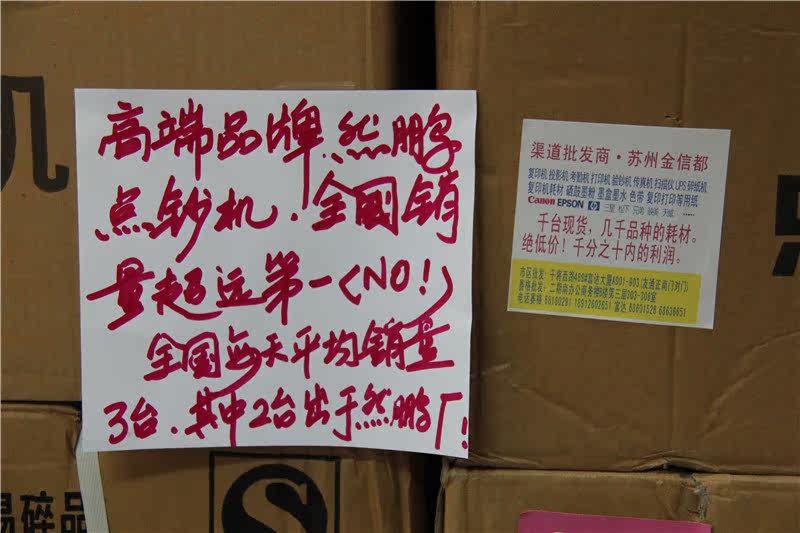 高端品牌.然鹏字
点钞机.全国销
量超远第一(NO!)
全国每天平均销量
3台.其中2台出于然鹏厂!
渠道批发商·苏州金信都
复印机 投影机 考勤机 打印机 验钞机 传真机 扫描仪 UPS 碎纸机
复印机耗材 硒鼓墨粉 墨盒墨水 色带 复印打印等用纸
Canon EPSON hp 三星 松下
千台现货，几千品种的耗材。
绝低价！千分之十内的利润。
机
易碎品
S